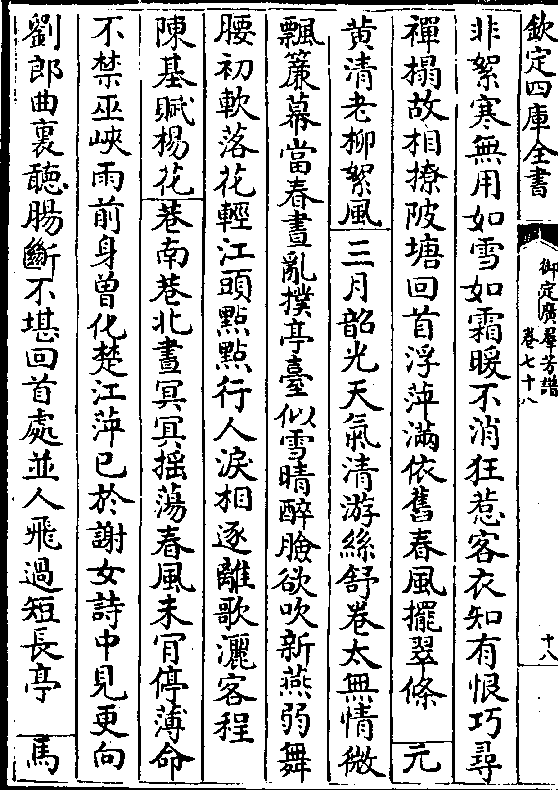 欽定四庫全書
御定廣羣芳譜
卷七十八
十八
非絮寒無用如雪如霜暖不消狂惹客衣知有恨巧尋
禪榻故相撩陂塘回首浮萍滿依舊春風擺翠條 元
黄清老柳絮風 三月韶光天氣清游絲舒卷太無情微
飄簾幕當春晝亂撲亭臺似雪晴醉臉欲吹新燕弱舞
腰初軟落花輕江頭點點行人淚相逐離歌灑客程
陳基賦楊花 巷南巷北晝冥冥摇蕩春風未肎停薄命
不禁巫峽雨前身曾化楚江萍已於謝女詩中見更向
劉郎曲裏聽腸斷不堪回首處並人飛過短長亭 馬